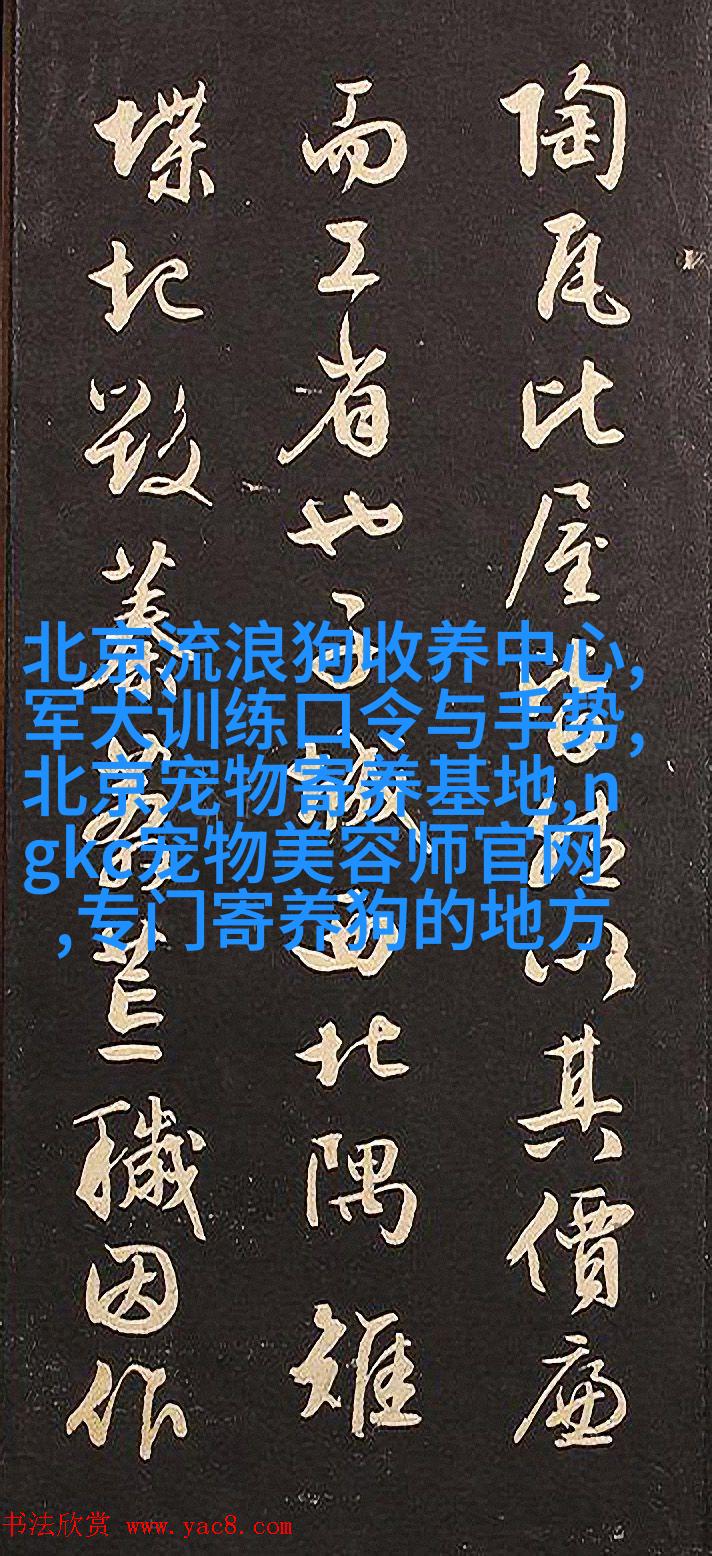 陶瓦比屋皆然以其價廉
而工省也子城西北隅雉
堞圮毀蓁莽荒穢因作
北京流浪狗收养中心,
军犬训练口令与手势,
北京宠物寄养基地,n
gkc宠物美容师官网
,专门寄养狗的地方
书法欣赏 www.yac8.com